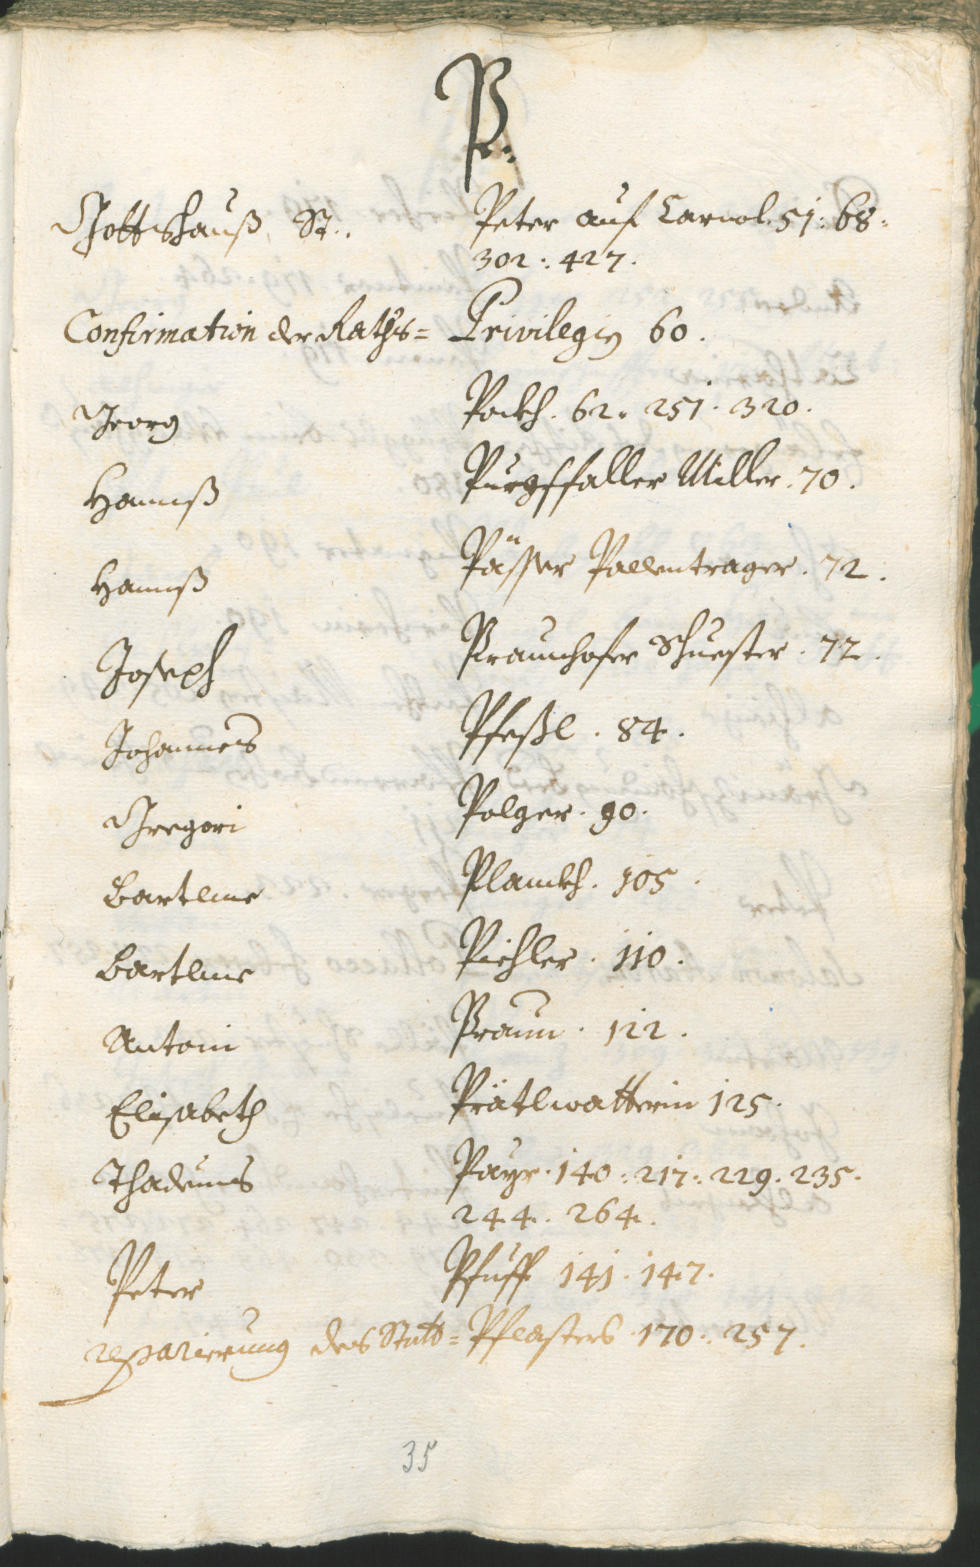 P:
Gottshauß, St:. Peter auf Carnol. 51: 68:
302: 427.
Confirmation der Raths= Privilegien 60.
Georg Pockh. 62. 251. 320.
Hannß Purgstaller Miller. 70.
Hannß Pässer Pallentrager. 72.
Joseph Praunhofer Schuester. 72.
Johannes Pfeßl. 84.
Gregori Polger. 90.
Bartlme Planckh. 105.
Bartlme Pichler. 110.
Antoni Praun. 122.
Elisabeth Prätlwatterin 125.
Thadeus Payr. 140: 217: 229. 235.
244. 264.
Peter Pfuff 141. 147.
reparierung des Statt= Pflasters 170. 257.
35